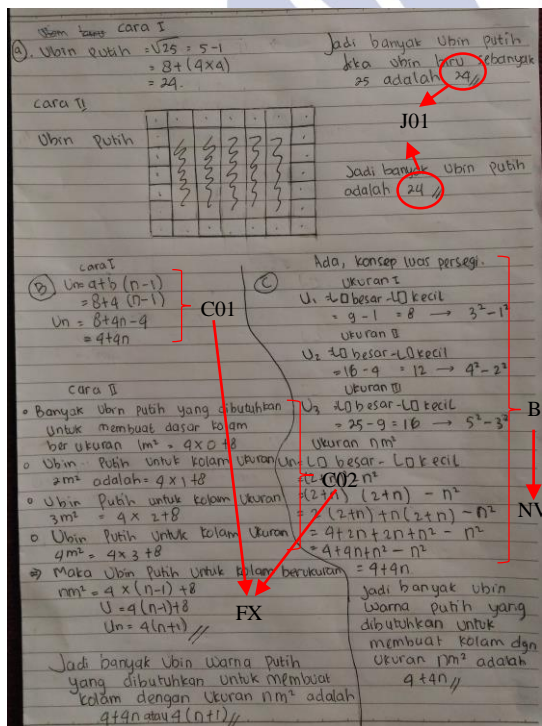 cara I
a). Ubin putih = √25 = 5-1
= 8+(4×4)
= 24.
Jadi banyak ubin putih
jika ubin biru sebanyak
25 adalah 24 //
J01
cara II
Ubin Putih
Jadi banyak ubin putih
adalah 24 //
cara I
B Un = a+b (n-1)
= 8+4 (n-1)
Un = 8+4n-4
= 4+4n
C01
cara II
• Banyak ubin putih yang dibutuhkan
untuk membuat dasar kolam
berukuran 1m² = 4×0+8
○ Ubin Putih untuk kolam ukuran
2m² adalah = 4×1+8
○ Ubin Putih untuk kolam ukuran
3m² = 4×2+8
○ Ubin Putih untuk kolam ukuran
4m² = 4×3+8
⇒ Maka ubin Putih untuk kolam berukuran
nm² = 4×(n-1)+8
U = 4(n-1)+8
Un = 4(n+1) //
FX
Jadi banyak ubin warna putih
yang dibutuhkan untuk membuat
kolam dengan ukuran nm² adalah
4+4n atau 4(n+1) //
C Ada, konsep luas persegi.
Ukuran I
U₁ = L□ besar - L□ kecil
= 9-1 = 8 → 3²-1²
Ukuran II
U₂ = L□ besar - L□ kecil
= 16-4 = 12 → 4²-2²
Ukuran III
U₃ = L□ besar - L□ kecil
= 25-9 = 16 → 5²-3²
Ukuran nm²
Un = L□ besar - L□ kecil
C02
= (2+n) (2+n) - n²
= 2(2+n)+n(2+n) - n²
= 4+2n+2n+n² - n²
= 4+4n+n² - n²
= 4+4n
Jadi banyak ubin
warna putih yang
dibutuhkan untuk
membuat kolam dgn
ukuran nm² adalah
4+4n //
B
NV